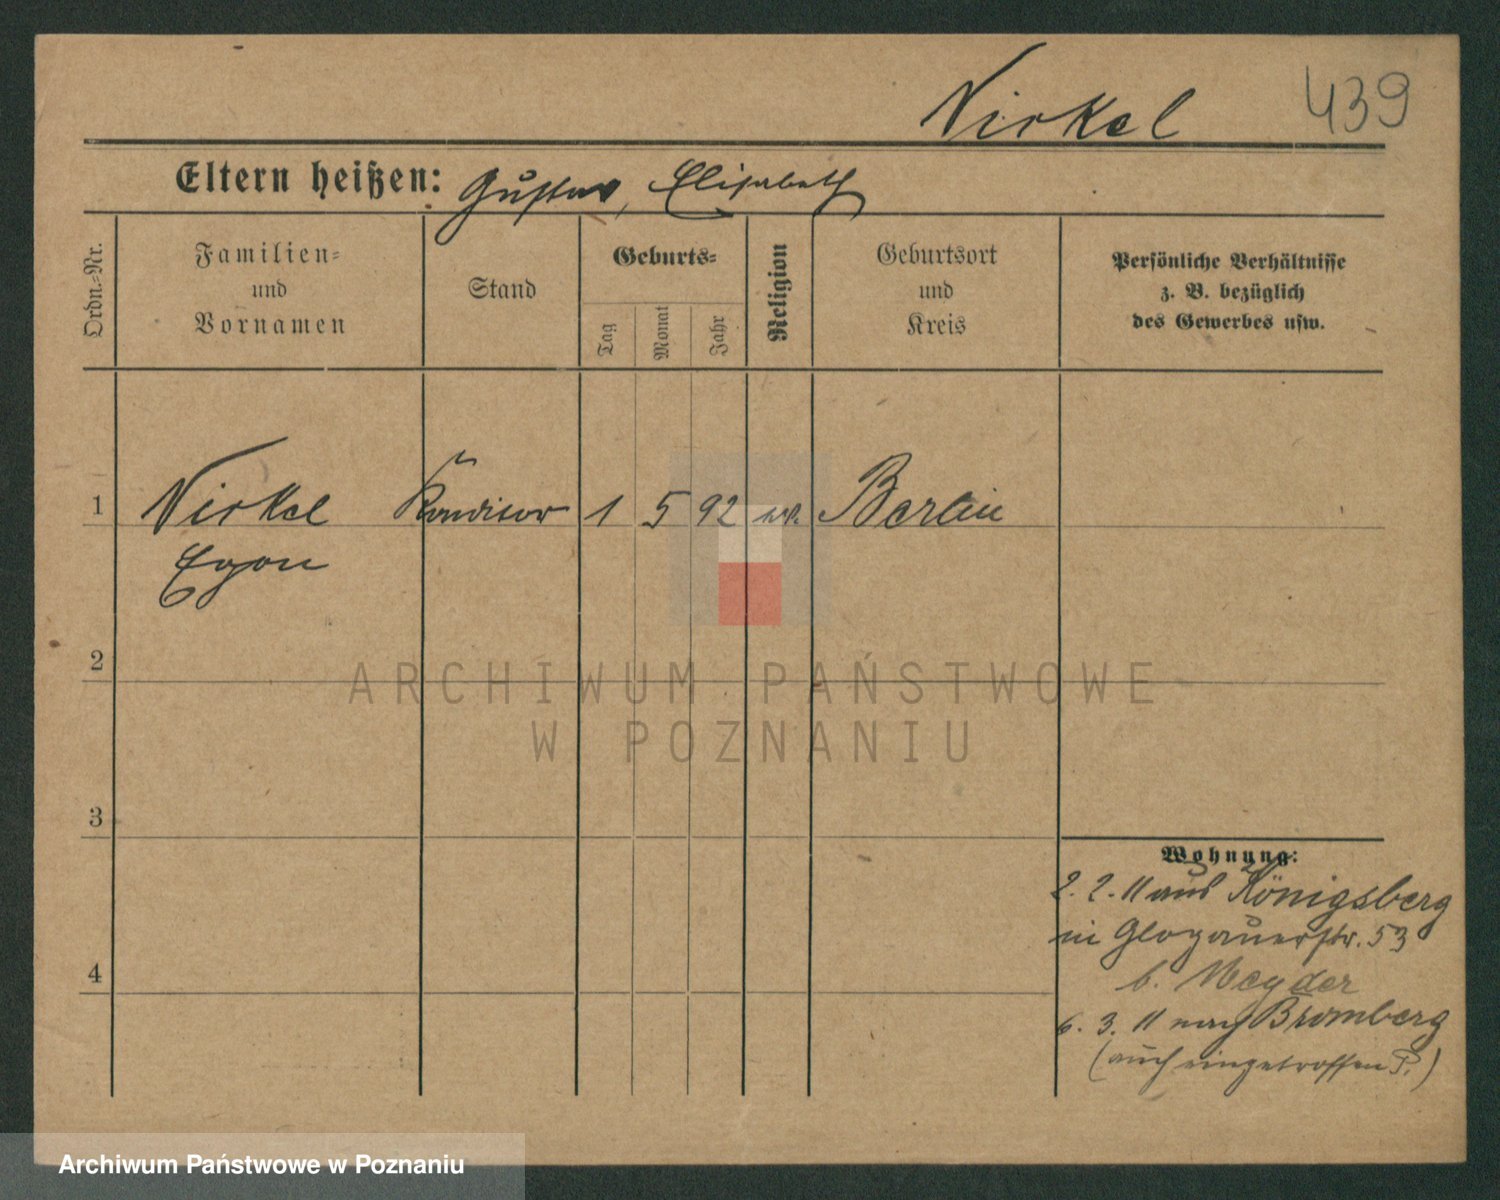 Nirkel 439
Eltern heißen: Gustav, Elisabeth
Ordn.-Nr.
Familien-
und
Vornamen
Stand
Geburts-
Tag
Monat
Jahr
Religion
Geburtsort
und
Kreis
Persönliche Verhältnisse
z. B. bezüglich
des Gewerbes usw.
1 Nirkel Konditor 1 5 92 Berlin
Egon
2
3
4
ARCHIWUM PAŃSTWOWE
W POZNANIU
Wohnung:
2. 2. 11 aus Königsberg
in Glogauerstr. 53
b. Meyder
6. 3. 11 nach Bromberg
(auch eingetroffen P.)
Archiwum Państwowe w Poznaniu